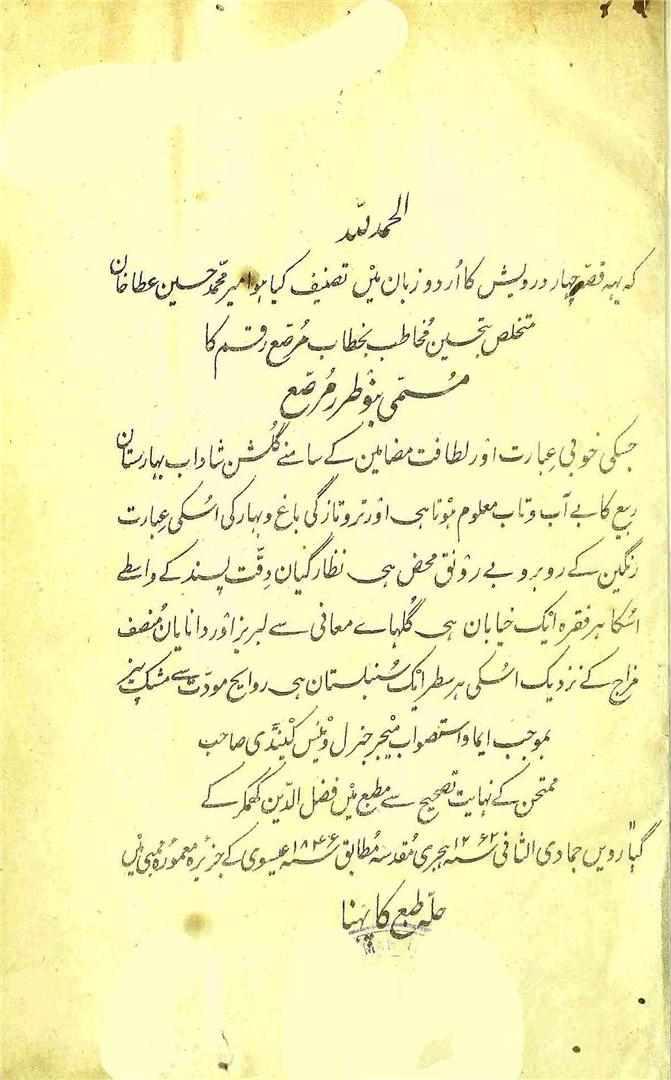 الحمد للہ
کہ یہہ قصہ چہار درویش کا اُردو زبان میں تصنیف کیا ہوا میر محمد حسین عطا خان
متخلص بتحسین مُخاطب بخطاب مُرصّع رقم کا
مُسمّیٰ بنوطرز مُرصّع
جسکی خوبیِ عبارت اور لطافت مضامین کے سامنے گلُشن شاداب بہارستان
ربیع کا بے آب و تاب معلوم ہوتا ہی اور تروتازگی باغ و بہار کی اُسکی عبارت
رنگین کے روبرو بے رونق محض ہی نظارگیان دِقّت پسند کے واسطے
اُسکا ہر فقرہ ایک خیابان ہی گُلہاے معانی سے لبریز اور دانایان مُنصف
مزاج کے نزدیک اُسکی ہر سطر ایک سُنبلستان ہی روایح مودّت سے مشک بیز
بموجب ایما و استصواب میجر جنرل وئنس کنیڈی صاحب
ممتحن کے نہایت تصحیح سے مطبع میں فضل الدّین کھمکر کے
گیارویں جمادی الثانی سنہ ۱۲۶۲ ہجری مُقدسہ مُطابق سنہ ۱۸۴۶ عیسوی کے جزیرہ معمورہ ممبئی میں
حلّہ طبع کا پہنا